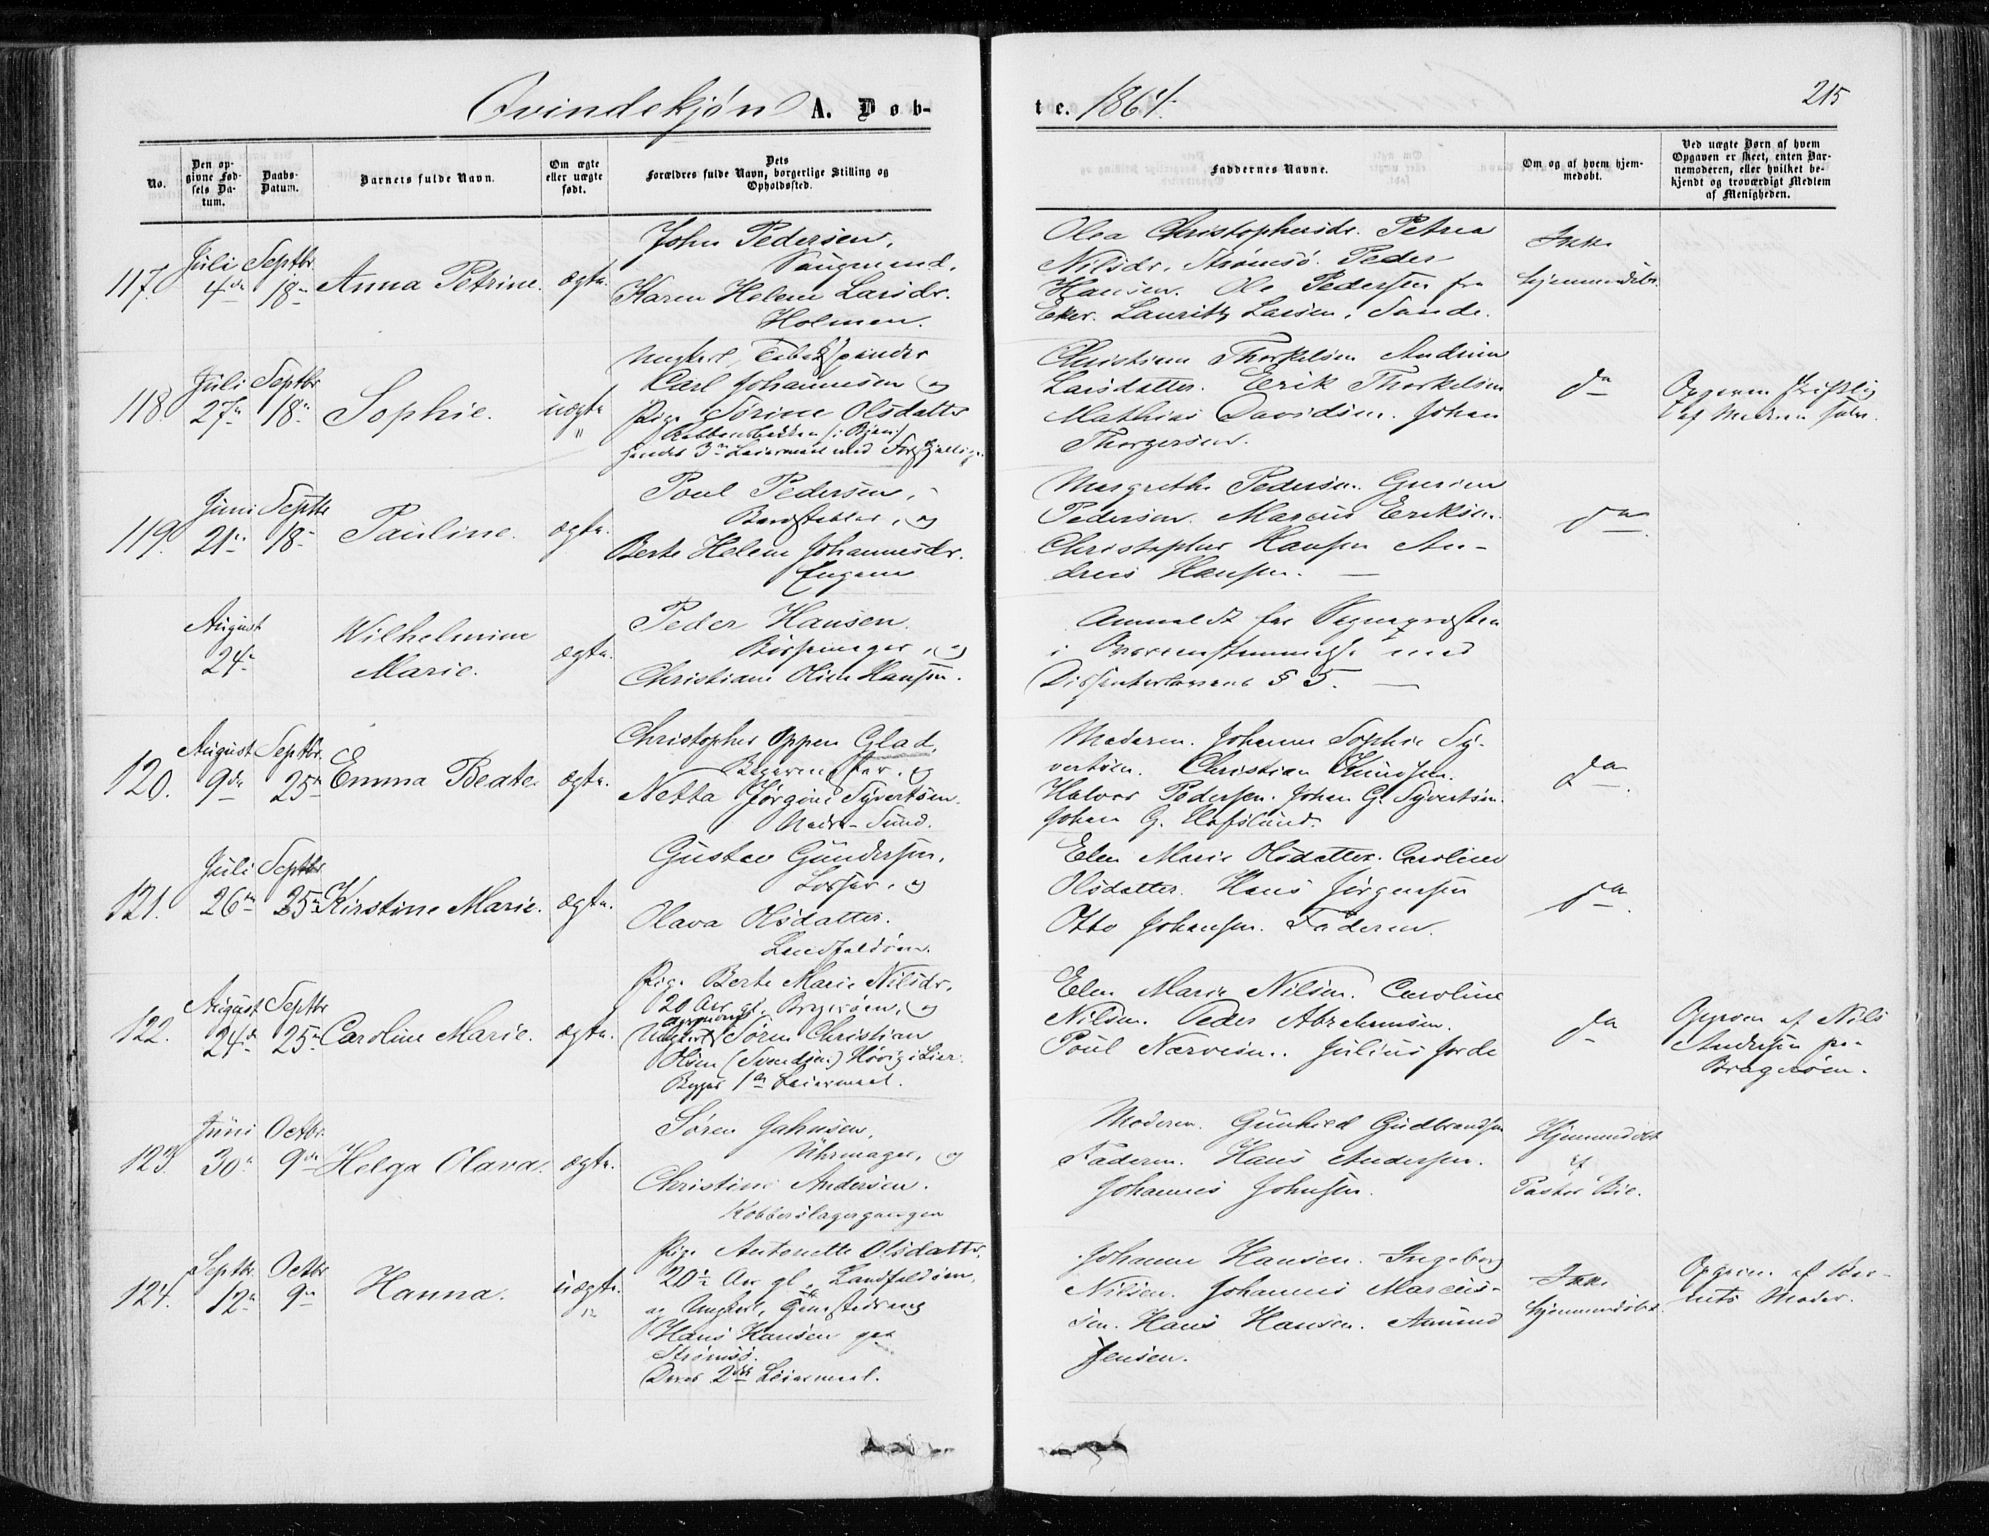 Qvindekjøn A. Døb-
te. 1864.
215
No.
Den op-
givne Fød-
sels Da-
tum.
Daabs-
Datum.
Barnets fulde Navn.
Om ægte
eller uægte
født.
Dets
Forældres fulde Navn, borgerlige Stilling og
Opholdssted.
Faddernes Navne.
Om og af hvem hjem-
medøbt.
Ved uægte Børn af hvem
Opgaven er skeet, enten Bar-
nemoderen, eller hvilket be-
kjendt og troværdigt Medlem
af Menigheden.
117.
Juli
4de
Septbr.
18
Anna Petrine.
ægte.
John Pedersen,
Karen Helene Larsdr.
Holmen.
Olea Christophersdr. Petrea
Nilsdr. Strømsø. Peder
Hansen. Ole Pedersen fra
Eker. Lauritz Larsen, Sande.
Ikke
hjemmedøbt.
118.
Juli
27
Septbr
18
Sophie.
uægte
"
Ungkarl,
Carl Johannesen og
Pige Sørine Olsdatter
hendes 3die Leiermaal med
Christiane Thorkelsen Andrine
Larsdatter. Erik Thorkelsen
Mathias Davidsen. Johan
Thorgersen.
da
Opgaven skriftlig
af Moderen selv.
119.
Juni
21
Septbr
18
Pauline.
ægte.
Poul Pedersen,
og
Berte Helene Johannesdr.
Engene
Margrethe Pedersen. Gurine
Pedersen. Marcus Eriksen.
Christopher Hansen An-
dreas Hansen. —
da
August
24
Wilhelmine
Marie.
ægte.
Peder Hansen.
Bøssemager, og
Christiane Oline Hansen.
Anmeldt for Sognepræsten
i Overenstemmelse med
Dissenterlovens § 5. —
120.
August
9de
Septbr.
25
Emma Beate.
ægte.
Christopher Oppen Glad,
Bagermester, og
Netta Jørgine Syvertsen.
Nedre-Sund.
Moderen. Johanne Sophie Sy-
vertsen. Christian Knudsen.
Halvor Pedersen. Johan G. Syvertsen.
Johan G. Hafslund.
da
121.
Juli
26
Septbr
25
Kirstine Marie.
ægte.
Gustav Gundersen,
Losser, og
Olava Olsdatter.
Landfaldøen.
Elen Marie Olsdatter. Caroline
Olsdatter. Hans Jørgensen
Otto Johansen. Faderen.
da
122.
August
24de
Septbr
25
Caroline Marie.
ægte.
Pige Berte Marie Nilsdr.
20 Aar gl. Bragerøen, og
Ungkarl Søren Christian
Olsen (Svendsen) Høvig i Lier
Begges 1ste Leiermaal.
Elen Marie Nilsen. Caroline
Nilsen. Peder Abrahamsen.
Poul Narvesen. Julius Jorde
da
Opgaven af Nils
Andersen paa
Bragerøen.
123.
Juni
30
Octbr.
9de
Helga Olava.
ægte.
Søren Jahnsen,
Uhrmager, og
Christine Andersen.
Kobberslagergangen
Moderen. Gunhild Gudbrandsen
Faderen. Hans Andersen.
Johannes Johnsen.
Hjemmedøbt
af
Pastor Bie.
124.
Septbr.
12
Octbr
9
Hanna.
uægte.
Pige Antonette Olsdatter,
20½ Aar gl. Landfaldøen,
og Ungkarl,
Hans Hansen paa
Strømsø.
Deres 2det Leiermaal.
Johanne Hansen. Ingeborg
Nilsen. Johannes Marcus-
sen. Hans Hansen. Amund
Jensen.
Ikke
hjemmedøbt.
Opgaven af Bar-
nets Moder.